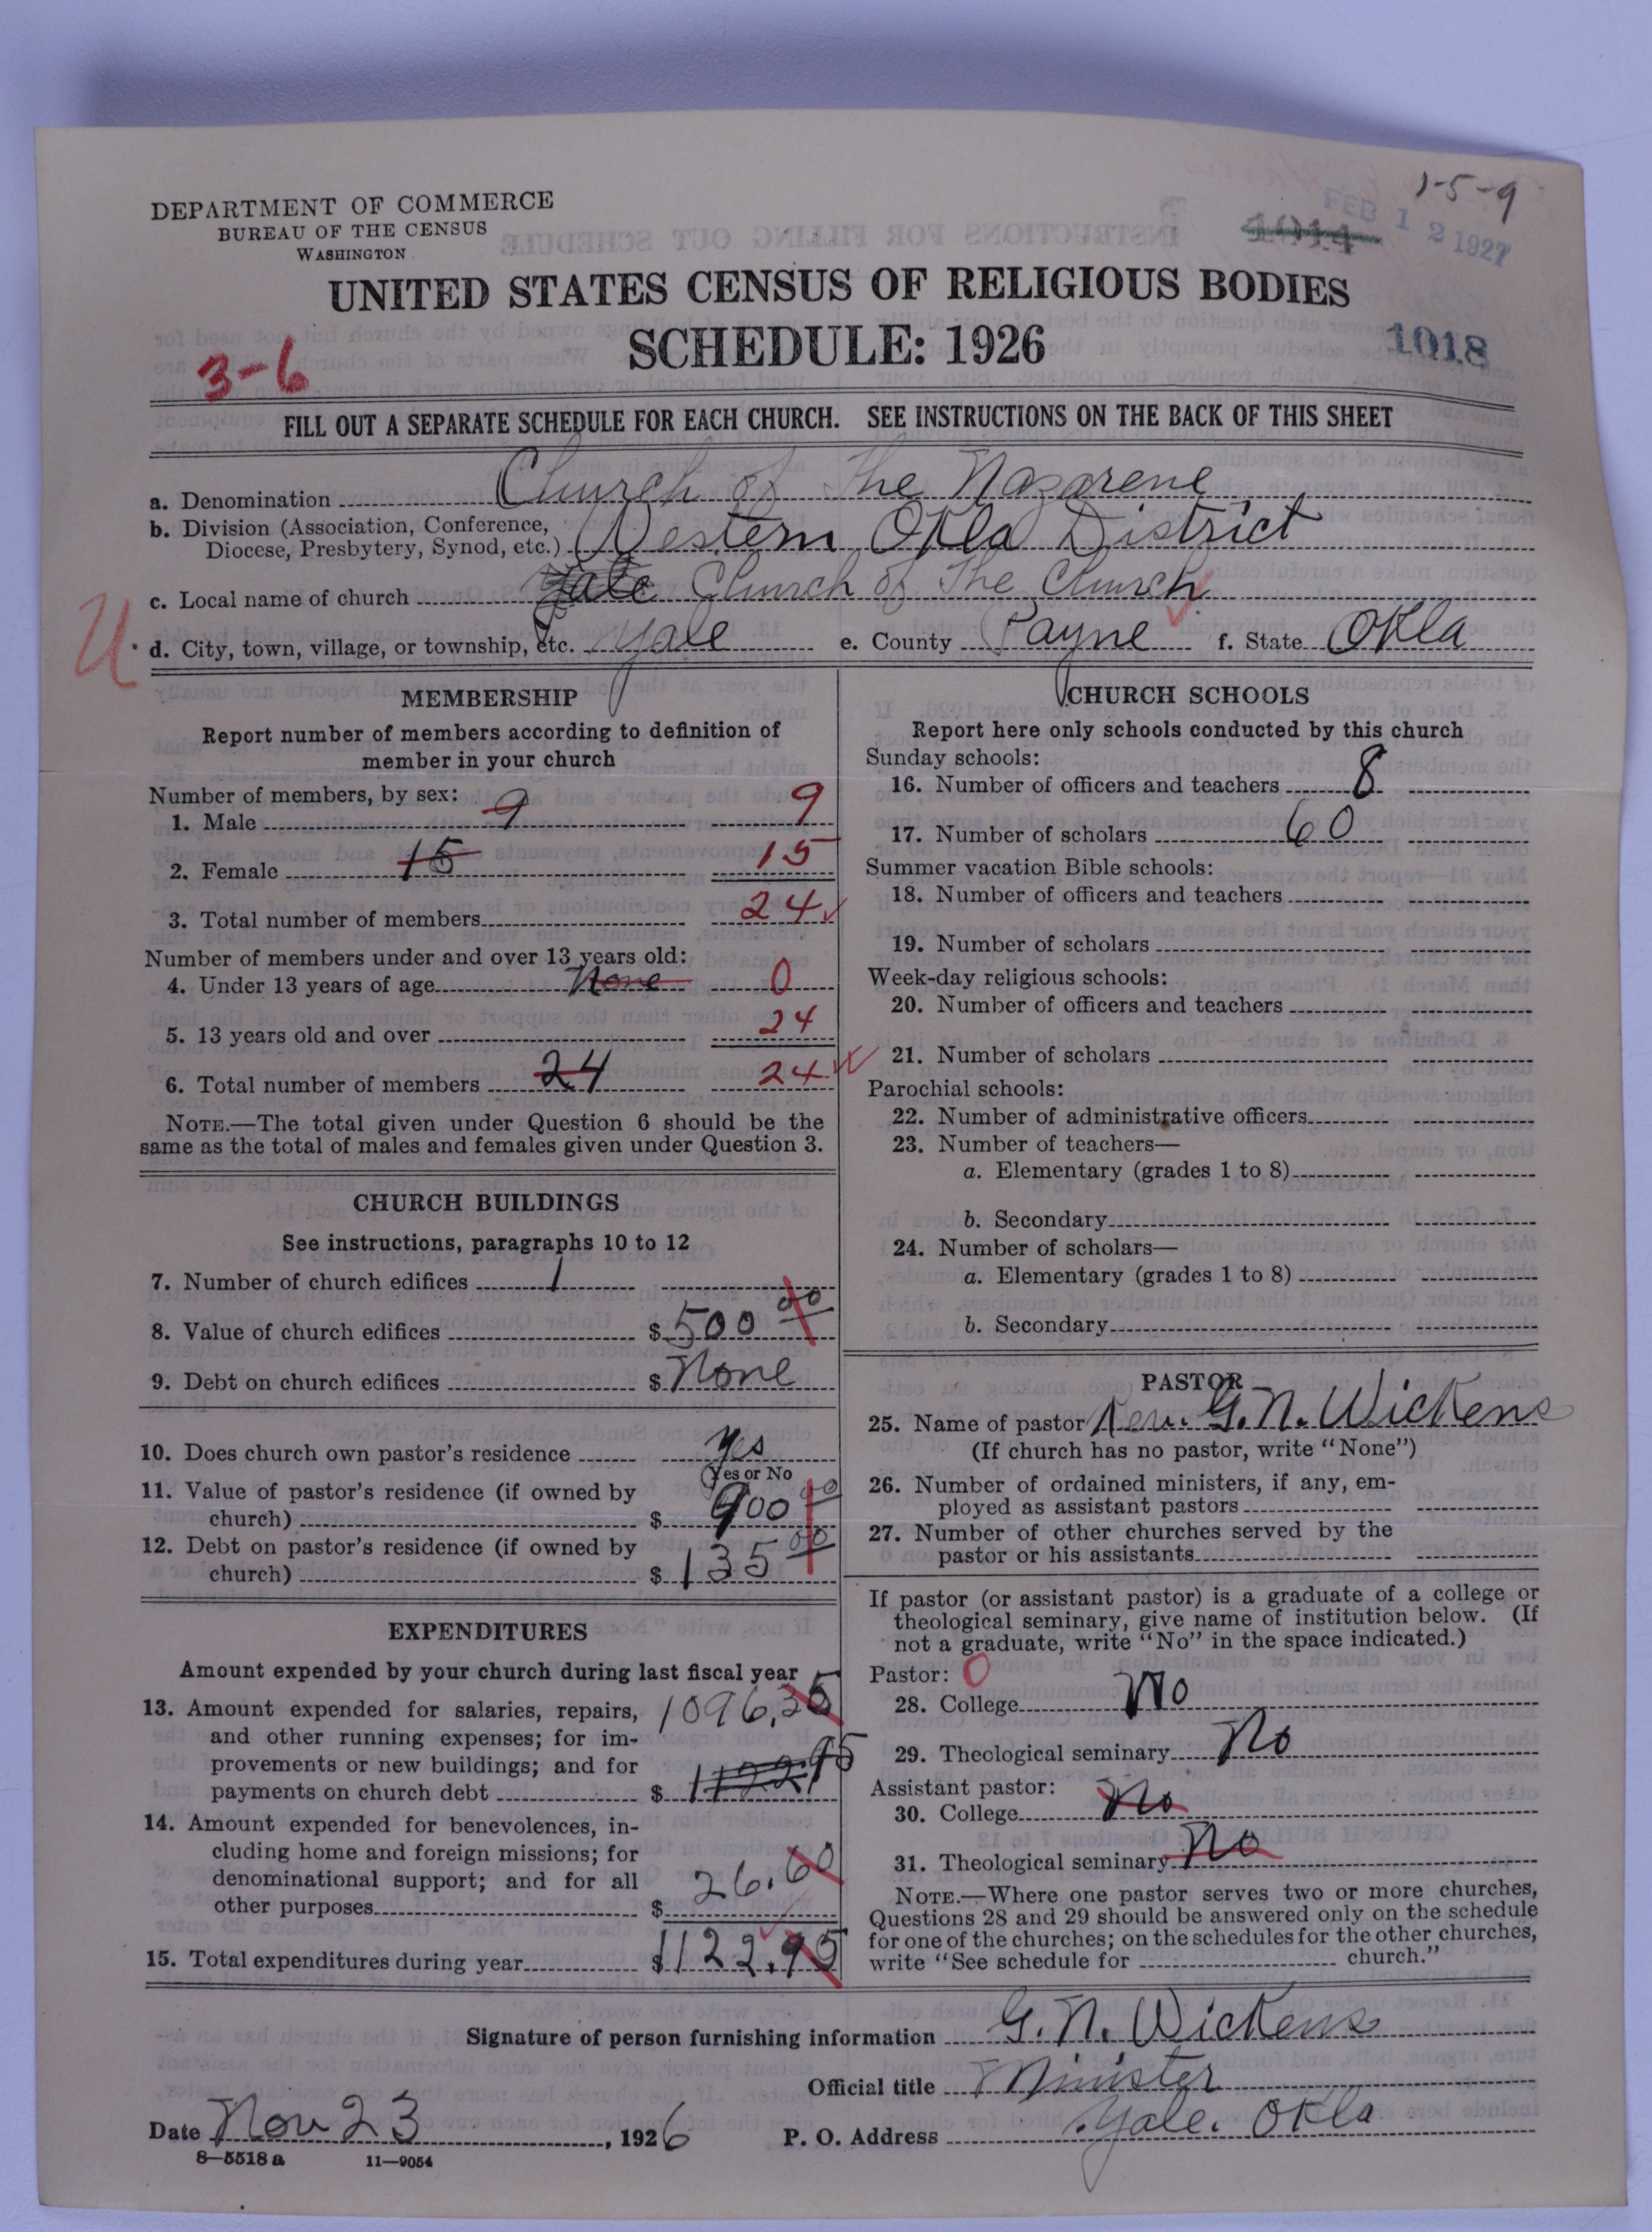 1-5-9
DEPARTMENT OF COMMERCE
BUREAU OF THE CENSUS
WASHINGTON
1014
FEB 12 1927
UNITED STATES CENSUS OF RELIGIOUS BODIES
SCHEDULE: 1926
3-6
1018
FILL OUT A SEPARATE SCHEDULE FOR EACH CHURCH. SEE INSTRUCTIONS ON THE BACK OF THIS SHEET
a. Denomination Church of the Nazarene
b. Division (Association, Conference,
Diocese, Presbytery, Synod, etc.) Western Okla District
c. Local name of church Yale Church of The Church
U
d. City, town, village, or township, etc. Yale e. County Payne f. State Okla
MEMBERSHIP
Report number of members according to definition of
member in your church
Number of members, by sex:
1. Male 9 9
2. Female 15 15
3. Total number of members 24
Number of members under and over 13 years old:
4. Under 13 years of age None 0
5. 13 years old and over 24
6. Total number of members 24 24
NOTE.—The total given under Question 6 should be the
same as the total of males and females given under Question 3.
CHURCH BUILDINGS
See instructions, paragraphs 10 to 12
7. Number of church edifices 1
8. Value of church edifices $ 500 00
9. Debt on church edifices $ None
10. Does church own pastor's residence Yes
(Yes or No
11. Value of pastor's residence (if owned by
church) $ 900 00
12. Debt on pastor's residence (if owned by
church) $ 135 00
EXPENDITURES
Amount expended by your church during last fiscal year
13. Amount expended for salaries, repairs, 1096,35
and other running expenses; for im-
provements or new buildings; and for
payments on church debt $ 1122 95
14. Amount expended for benevolences, in-
cluding home and foreign missions; for
denominational support; and for all
other purposes $ 26.60
15. Total expenditures during year $1122.95
CHURCH SCHOOLS
Report here only schools conducted by this church
Sunday schools:
16. Number of officers and teachers 8
17. Number of scholars 60
Summer vacation Bible schools:
18. Number of officers and teachers
19. Number of scholars
Week-day religious schools:
20. Number of officers and teachers
21. Number of scholars
Parochial schools:
22. Number of administrative officers
23. Number of teachers—
a. Elementary (grades 1 to 8)
b. Secondary
24. Number of scholars—
a. Elementary (grades 1 to 8)
b. Secondary
PASTOR
25. Name of pastor Rev. G. N. Wickens
(If church has no pastor, write "None")
26. Number of ordained ministers, if any, em-
ployed as assistant pastors
27. Number of other churches served by the
pastor or his assistants
If pastor (or assistant pastor) is a graduate of a college or
theological seminary, give name of institution below. (If
not a graduate, write "No" in the space indicated.)
Pastor: 0
28. College No
29. Theological seminary No
Assistant pastor:
30. College No
31. Theological seminary No
NOTE.—Where one pastor serves two or more churches,
Questions 28 and 29 should be answered only on the schedule
for one of the churches; on the schedules for the other churches,
write "See schedule for church."
Signature of person furnishing information G. N. Wickens
Official title Minister
Date Nov 23, 1926 P. O. Address Yale. Okla
8-5518 a 11-9054